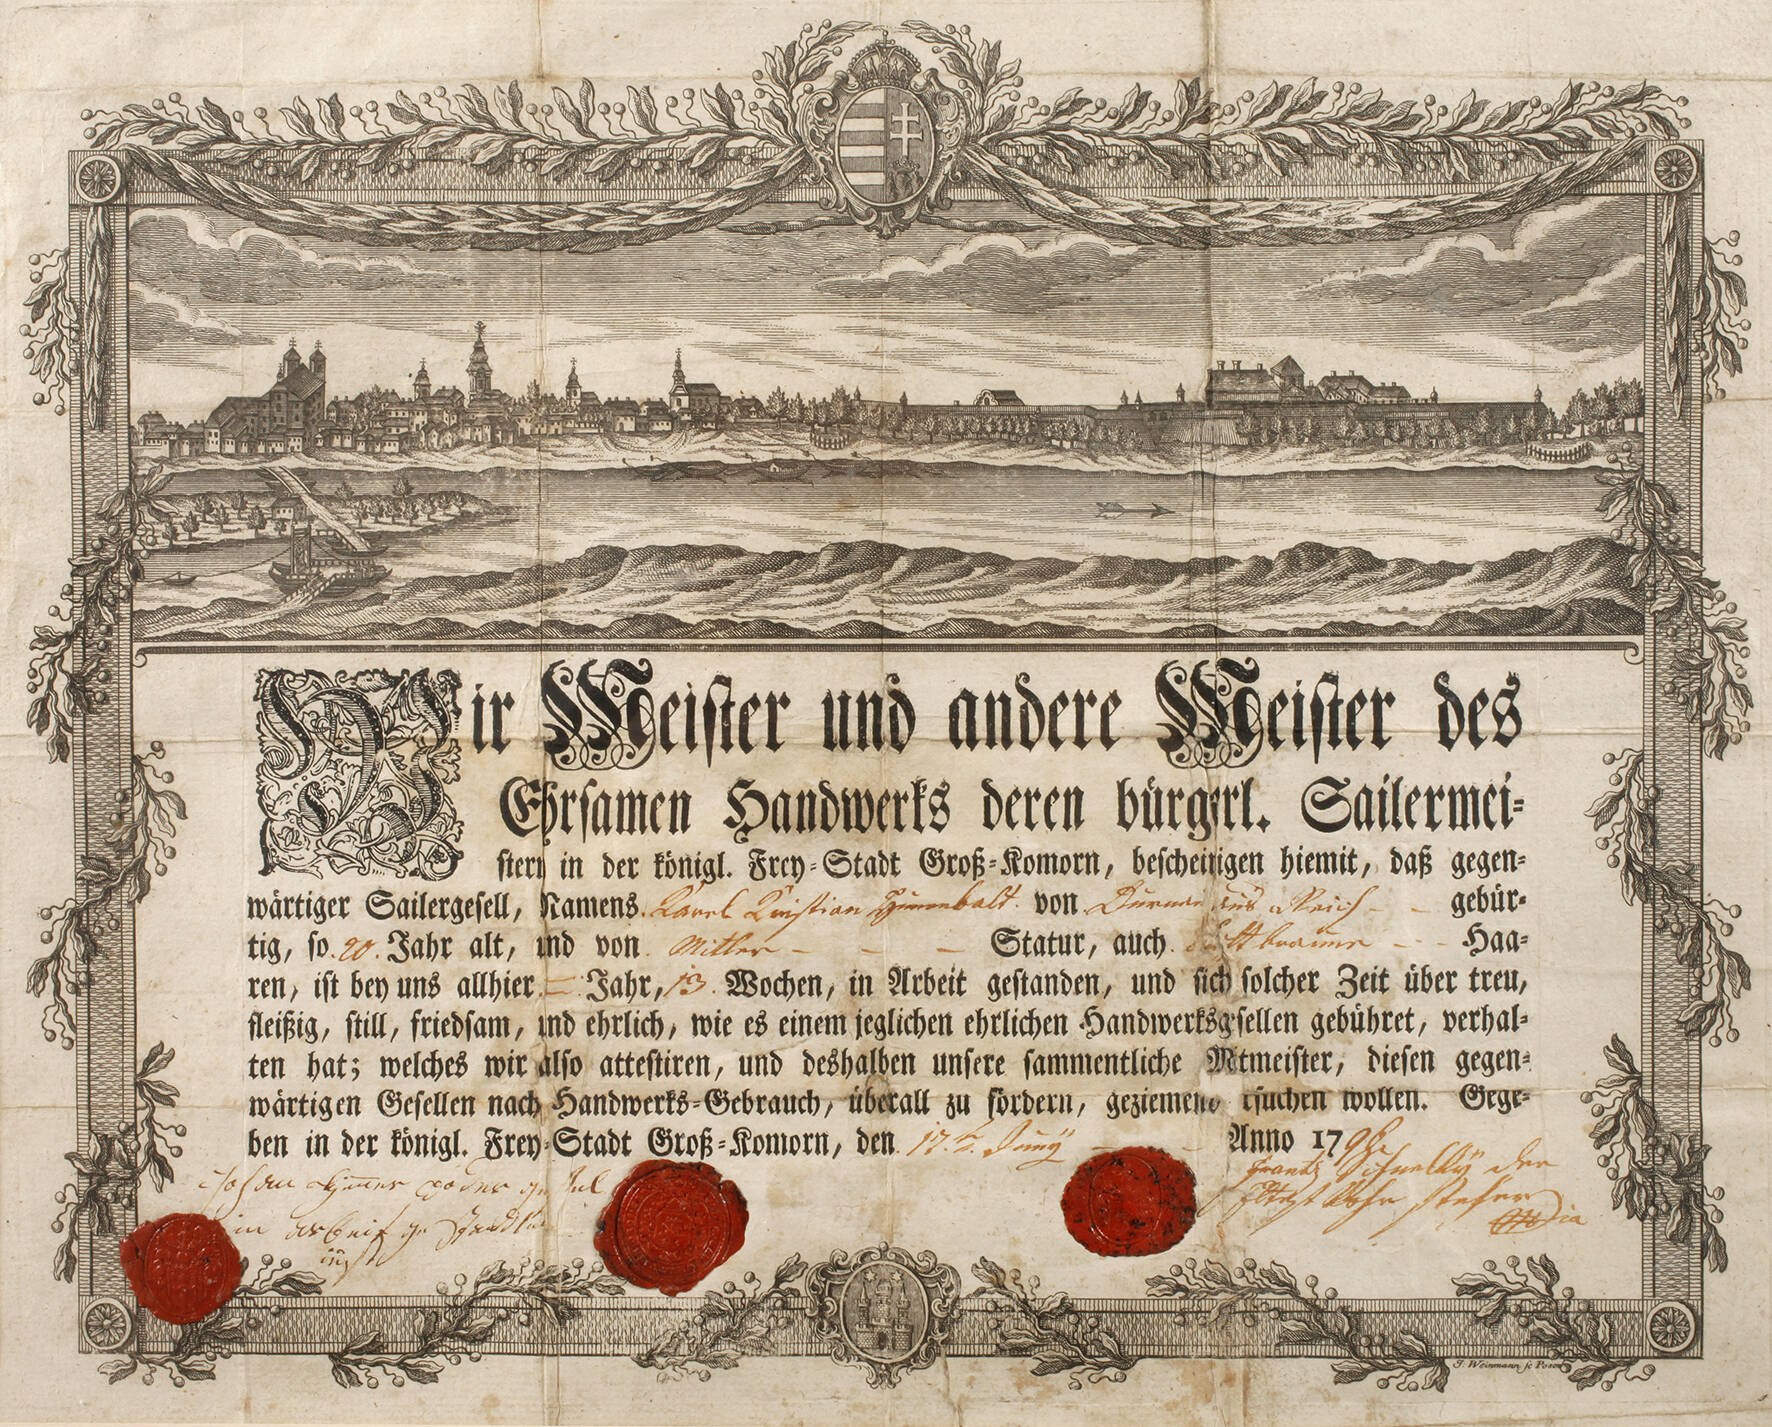 Wir Meister und andere Meister des
Ehrsamen Handwerks deren bürgerl. Sailermei-
stern in der königl. Frey-Stadt Groß-Komorn, bescheinigen hiemit, daß gegen-
wärtiger Sailergesell, Namens Karel Kristian von aus Reich gebür-
tig, so 20 Jahr alt, und von Mitler Statur, auch braune Haa-
ren, ist bey uns allhier = Jahr, 13 Wochen, in Arbeit gestanden, und sich solcher Zeit über treu,
fleißig, still, friedsam, und ehrlich, wie es einem jeglichen ehrlichen Handwerksgesellen gebühret, verhal-
ten hat; welches wir also attestiren, und deshalben unsere sammentliche Mitmeister, diesen gegen-
wärtigen Gesellen nach Handwerks-Gebrauch, überall zu fördern, geziemend ersuchen wollen. Gege-
ben in der königl. Frey-Stadt Groß-Komorn, den 17. Juny Anno 179
Johan
in arbeit
J. Weinmann sc